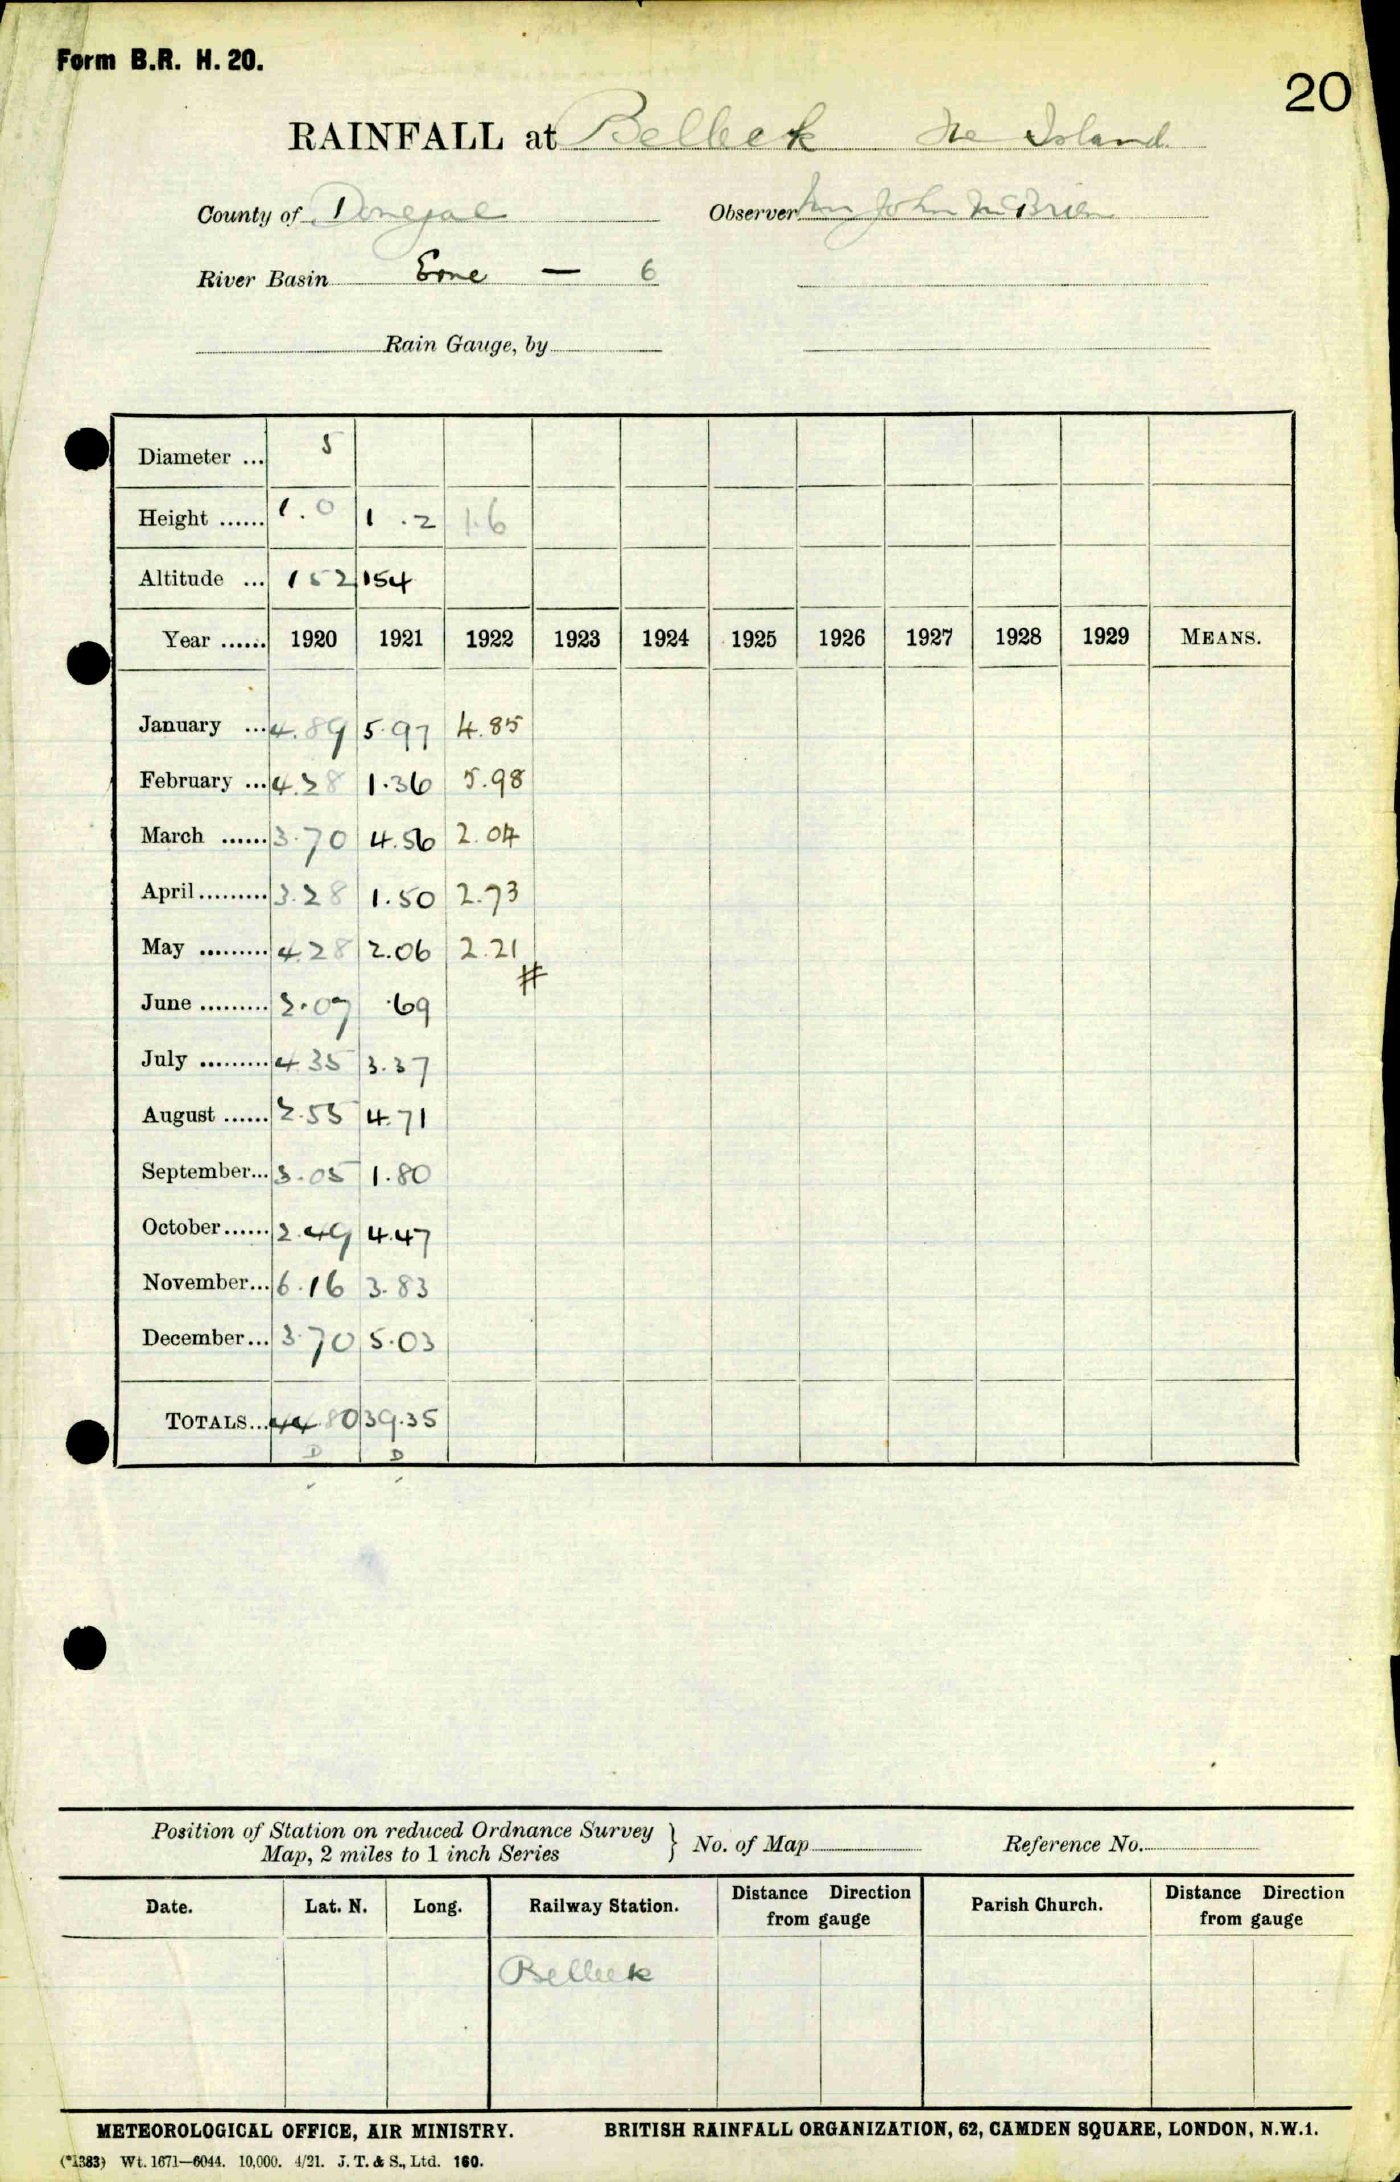 Form B.R. H. 20.
20
RAINFALL at Belleek The Island
County of Donegal Observer Mr John McBrien
River Basin Erne — 6
Rain Gauge, by
Diameter ... 5
Height ...... 1.0 1.2 1.6
Altitude ... 152 154
Year ...... 1920 1921 1922 1923 1924 1925 1926 1927 1928 1929 MEANS.
January ... 4.89 5.97 4.85
February ... 4.28 1.36 5.98
March ...... 3.70 4.56 2.04
April ......... 3.28 1.50 2.73
May ......... 4.28 2.06 2.21
#
June ......... 2.07 .69
July ......... 4.35 3.37
August ...... 2.55 4.71
September... 3.05 1.80
October...... 2.49 4.47
November... 6.16 3.83
December... 3.70 5.03
TOTALS... 44.80 39.35
D D
Position of Station on reduced Ordnance Survey
Map, 2 miles to 1 inch Series } No. of Map Reference No.
Date. Lat. N. Long. Railway Station. Distance from gauge Direction Parish Church. Distance from gauge Direction
Belleek
METEOROLOGICAL OFFICE, AIR MINISTRY. BRITISH RAINFALL ORGANIZATION, 62, CAMDEN SQUARE, LONDON, N.W.1.
(*1383) Wt. 1671—6044. 10,000. 4/21. J. T. & S., Ltd. 160.